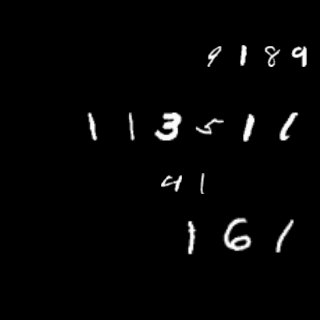 9189
113511
91
161